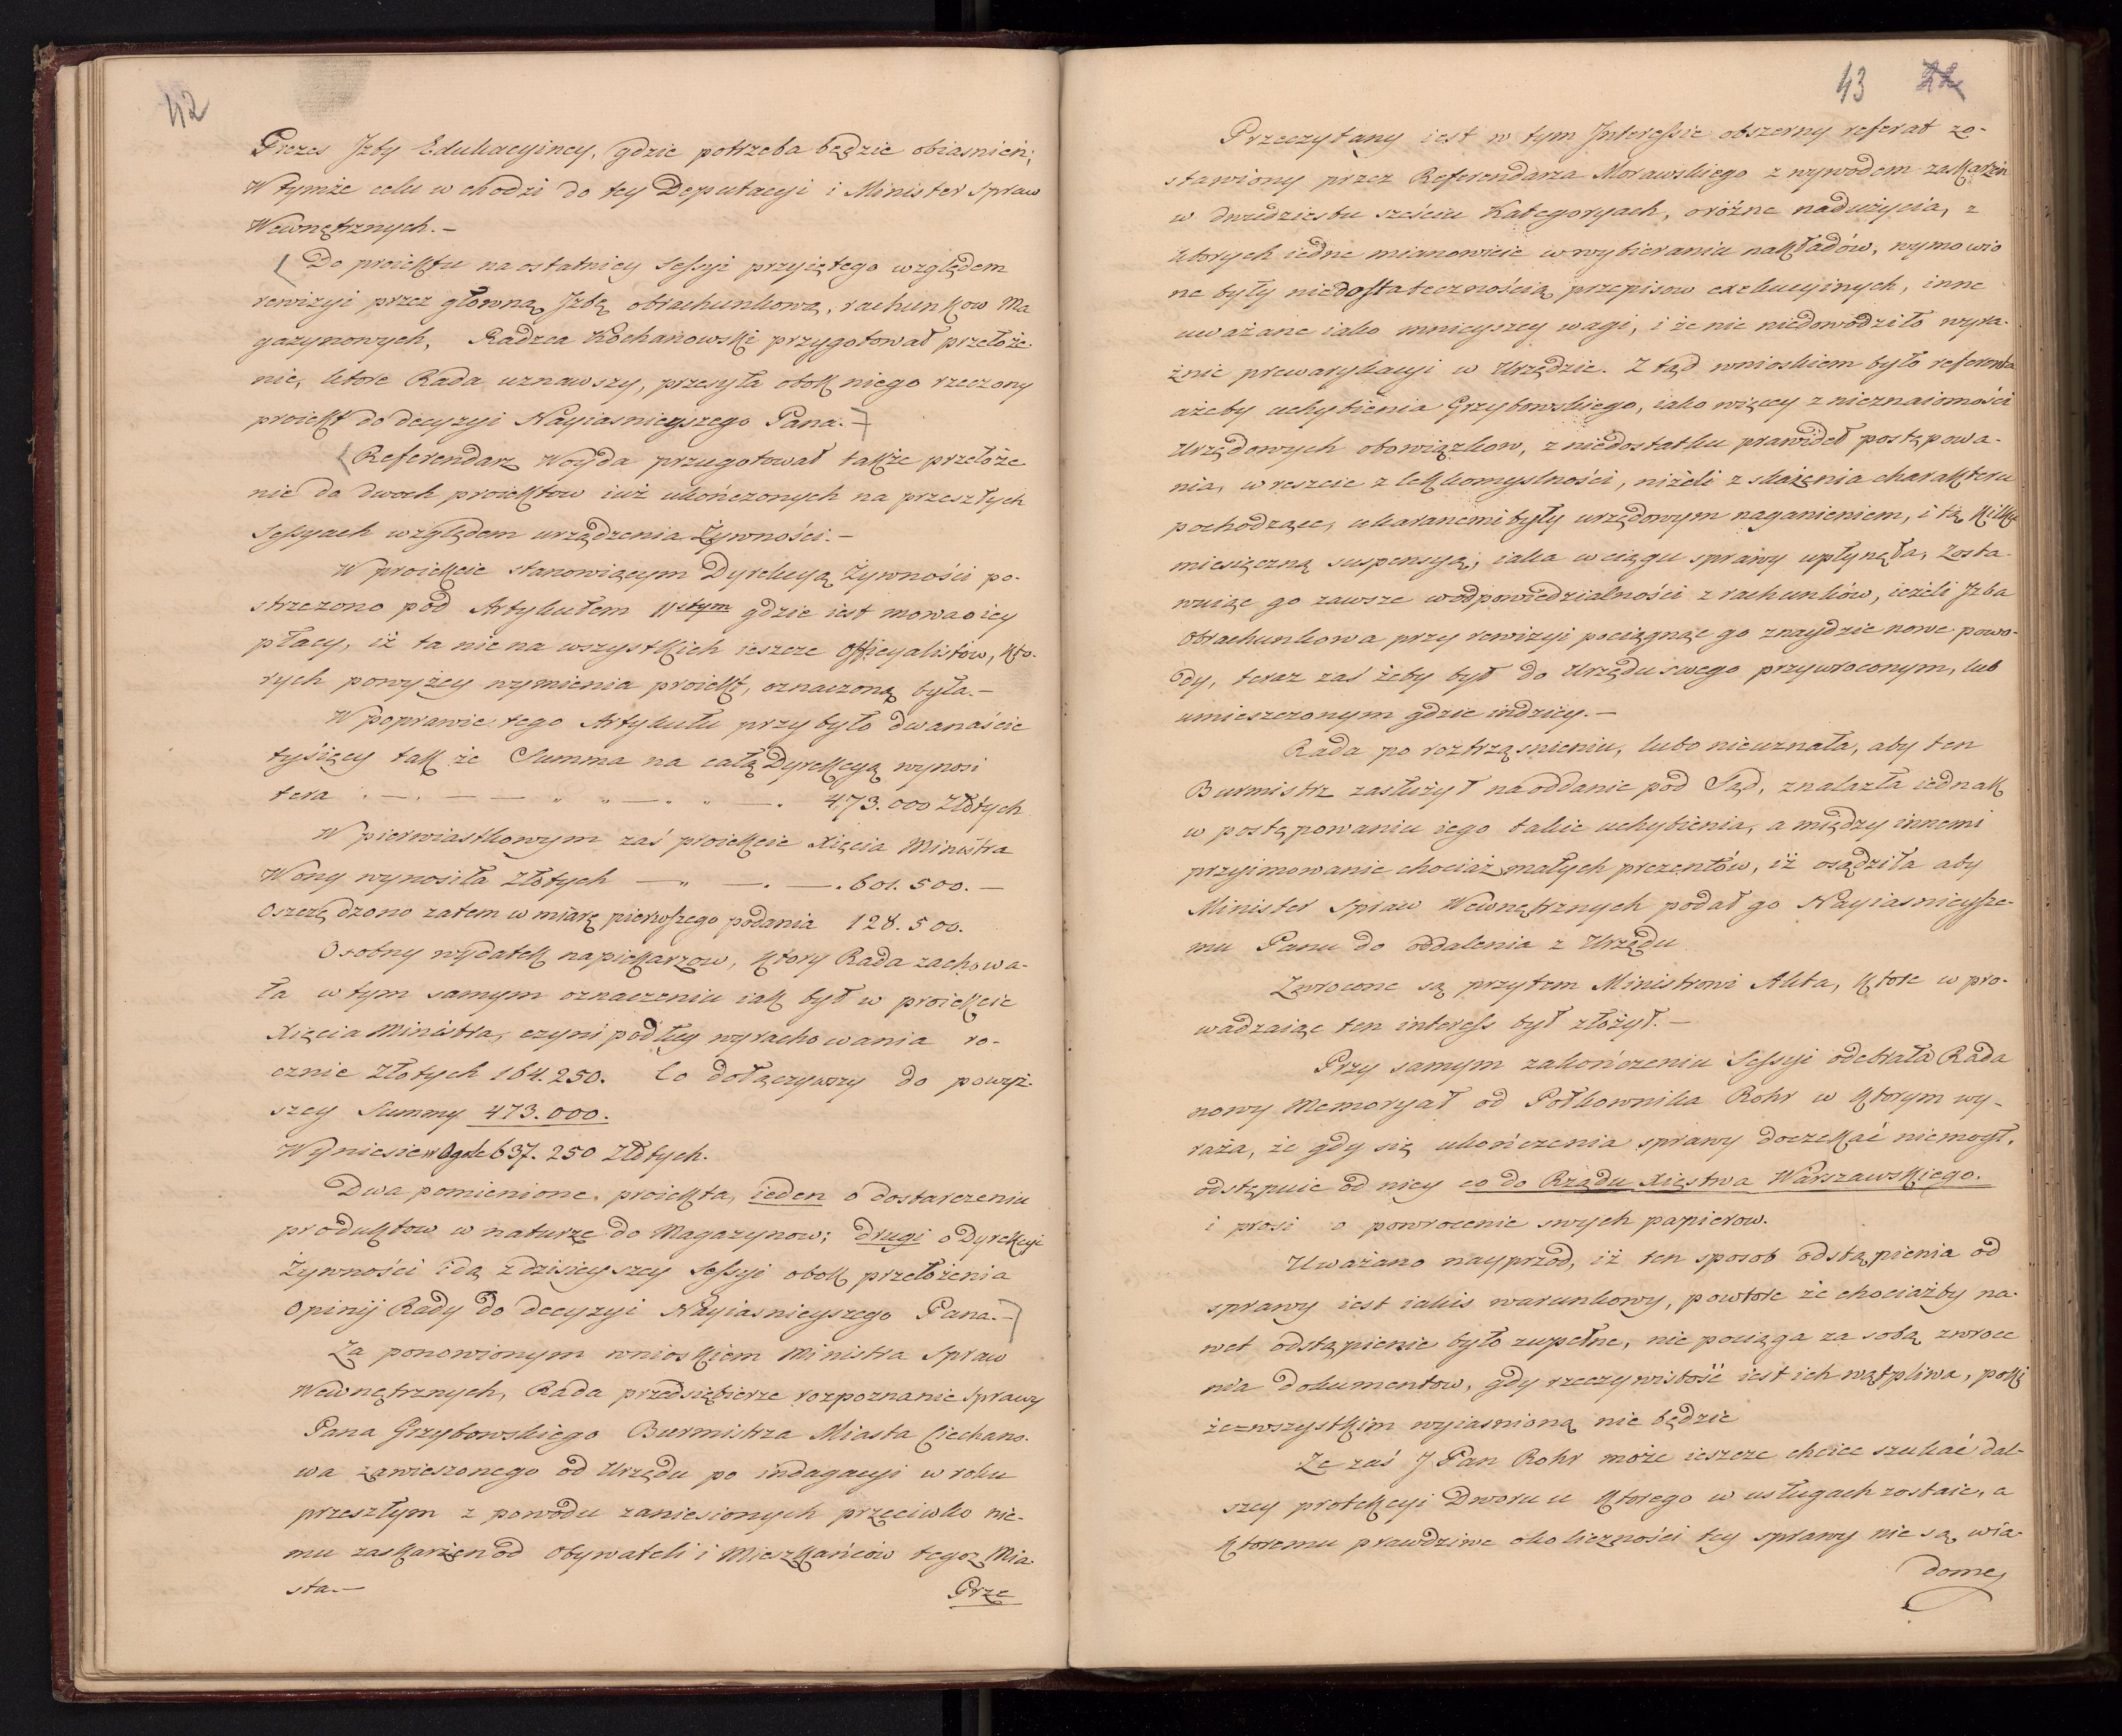 42
Prezes Jzby Edukacyiney, gdzie potrzeba będzie obiasnień;
W tymże celu wchodzi do tey Deputacyi i Minister Spraw
Wewnętrznych.—
Do proiektu na ostatniey Sessyi przyiętego względem
rewizyi przez główną Jzbę obrachunkową, rachunkow Ma
gazynowych, Radzca Kochanowski przygotował przełoże-
nie, ktore Rada uznawszy, przesyła obok niego rzeczony
proiekt do decyzyi Nayiasnieyszego Pana.—
Referendarz Woyda przugotował także przełoże
nie do dwoch proiektow iuż ukończonych na przeszłych
Sessyach względem urządzenia Żywności.—
W proiekcie stanowiącym Dyrekcyą Żywności po-
strzeżono pod Artykułem 11stym gdzie iest mowa o iey
płacy, iż ta nie na wszystkich ieszcze Officyalistow, kto-
rych powyżey wymienia proiekt, oznaczoną była.—
W poprawie tego Artykułu przybyło dwanaście
tysięcy tak że Summa na całą Dyrekcyą wynosi
tera . — . — — " " — . " — . 473.000 Złotych
W pierwiastkowym zaś proiekcie Xięcia Ministra
Wony wynosiła Złotych — " — . — . 601.500.—
Oszczędzono zatem w miarę pierwszego podania 128.500.
Osobny wydatek na piekarzow, ktory Rada zachowa-
ła w tym samym oznaczeniu iak był w proiekcie
Xięcia Ministra, czyni podług wyrachowania ro-
cznie Złotych 164.250. Co dołączywszy do powyż-
szey Summy 473.000.
Wyniesie w Ogole 637.250 Złotych.
Dwa pomienione proiekta, ieden o dostarczeniu
produktow w naturze do Magazynow; drugi o Dyrekcyi
Żywności idą z dzisieyszey Sessyi obok przełożenia
Opinij Rady do decyzyi Nayiasnieyszego Pana.—
Za ponowionym wnioskiem Ministra Spraw
Wewnętrznych, Rada przedsiębierze rozpoznanie Sprawy
Pana Grzybowskiego Burmistrza Miasta Ciechano-
wa zawieszonego od Urzędu po indagacyi w roku
przeszłym z powodu zaniesionych przeciwko nie-
mu zaskarżen od Obywateli i Mieszkańców tegoz Mia-
sta.—
Prze
43 22
Przeczytany iest w tym Jnteressie obszerny referat ze-
stawiony przez Referendarza Morawskiego z wywodem zaskarżeń
w dwudziestu sześciu Kategoryach, o różne nadużycia, z
ktorych iedne mianowicie w wybieraniu nakładów, wymowio
ne były niedostatecznością przepisow exekucyinych, inne
uważane iako mnieyszey wagi, i że nie niedowodziło wyra-
żnie prewarykacyi w Urzędzie. Z tąd wnioskiem było referenta
ażeby uchybienia Grzybowskiego, iako więcey z nieznaiomości
Urzędowych obowiązkow, z niedostatku prawideł postępowa-
nia, wreszcie z lekkomyslności, niżeli z skażenia charakteru
pochodzące, ukaranemi były urzędowym naganieniem, i tą kilko
miesięczną suspensyą; iaka w ciągu sprawy upłynęła, zosta-
wuiąc go zawsze w odpowiedzialności z rachunków, ieżeli Jzba
Obrachunkowa przy rewizyi pociągnąc go znaydzie nowe powo-
dy, teraz zaś żeby był do Urzędu swego przywroconym, lub
umieszczonym gdzie indziey.—
Rada po roztrząsnieniu, lubo nieuznała, aby ten
Burmistrz zasłużył na oddanie pod Sąd, znalazła iednak
w postępowaniu iego takie uchybienia, a między innemi
przyimowanie chociaż małych prezentów, iż osądziła aby
Minister Spraw Wewnętrznych podał go Nayiasnieysze-
mu Panu do oddalenia z Urzędu
Zwrocone są przytem Ministrowi Akta, ktore w pro-
wadzaiąc ten interess był złożył.—
Przy samym zakończeniu Sessyi odebrała Rada
nowy Memoryał od Połkownika Rohr w ktorym wy-
raża, że gdy się ukończenia sprawy doczekać niemogł,
odstępuie od niey co do Rządu Xięstwa Warszawskiego.
i prosi o powrocenie swych papierow.
Uważano nayprzod, iż ten sposob odstąpienia od
sprawy iest iakis warunkowy, powtore że chociażby na-
wet odstąpienie było zupełne, nie pociąga za sobą zwroce
nia dokumentow, gdy rzeczywistość iest ich wątpliwa, poki
ze wszystkim wyiasnioną nie będzie
Ze zaś J Pan Rohr może ieszcze chciec szukać dal-
szey protekcyi Dworu u ktorego w usługach zostaie, a
ktoremu prawdziwe okoliczności tey sprawy nie są wia-
dome,